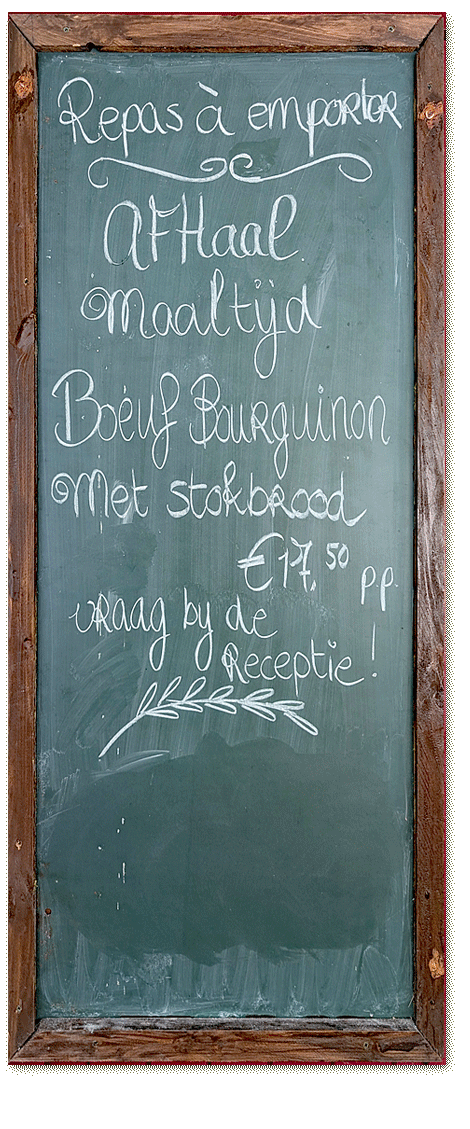 Repas à emporter
AFHaal
Maaltijd
Boeuf Bourguinon
Met stokbrood
€17,50 p.p.
vraag bij de
Receptie!